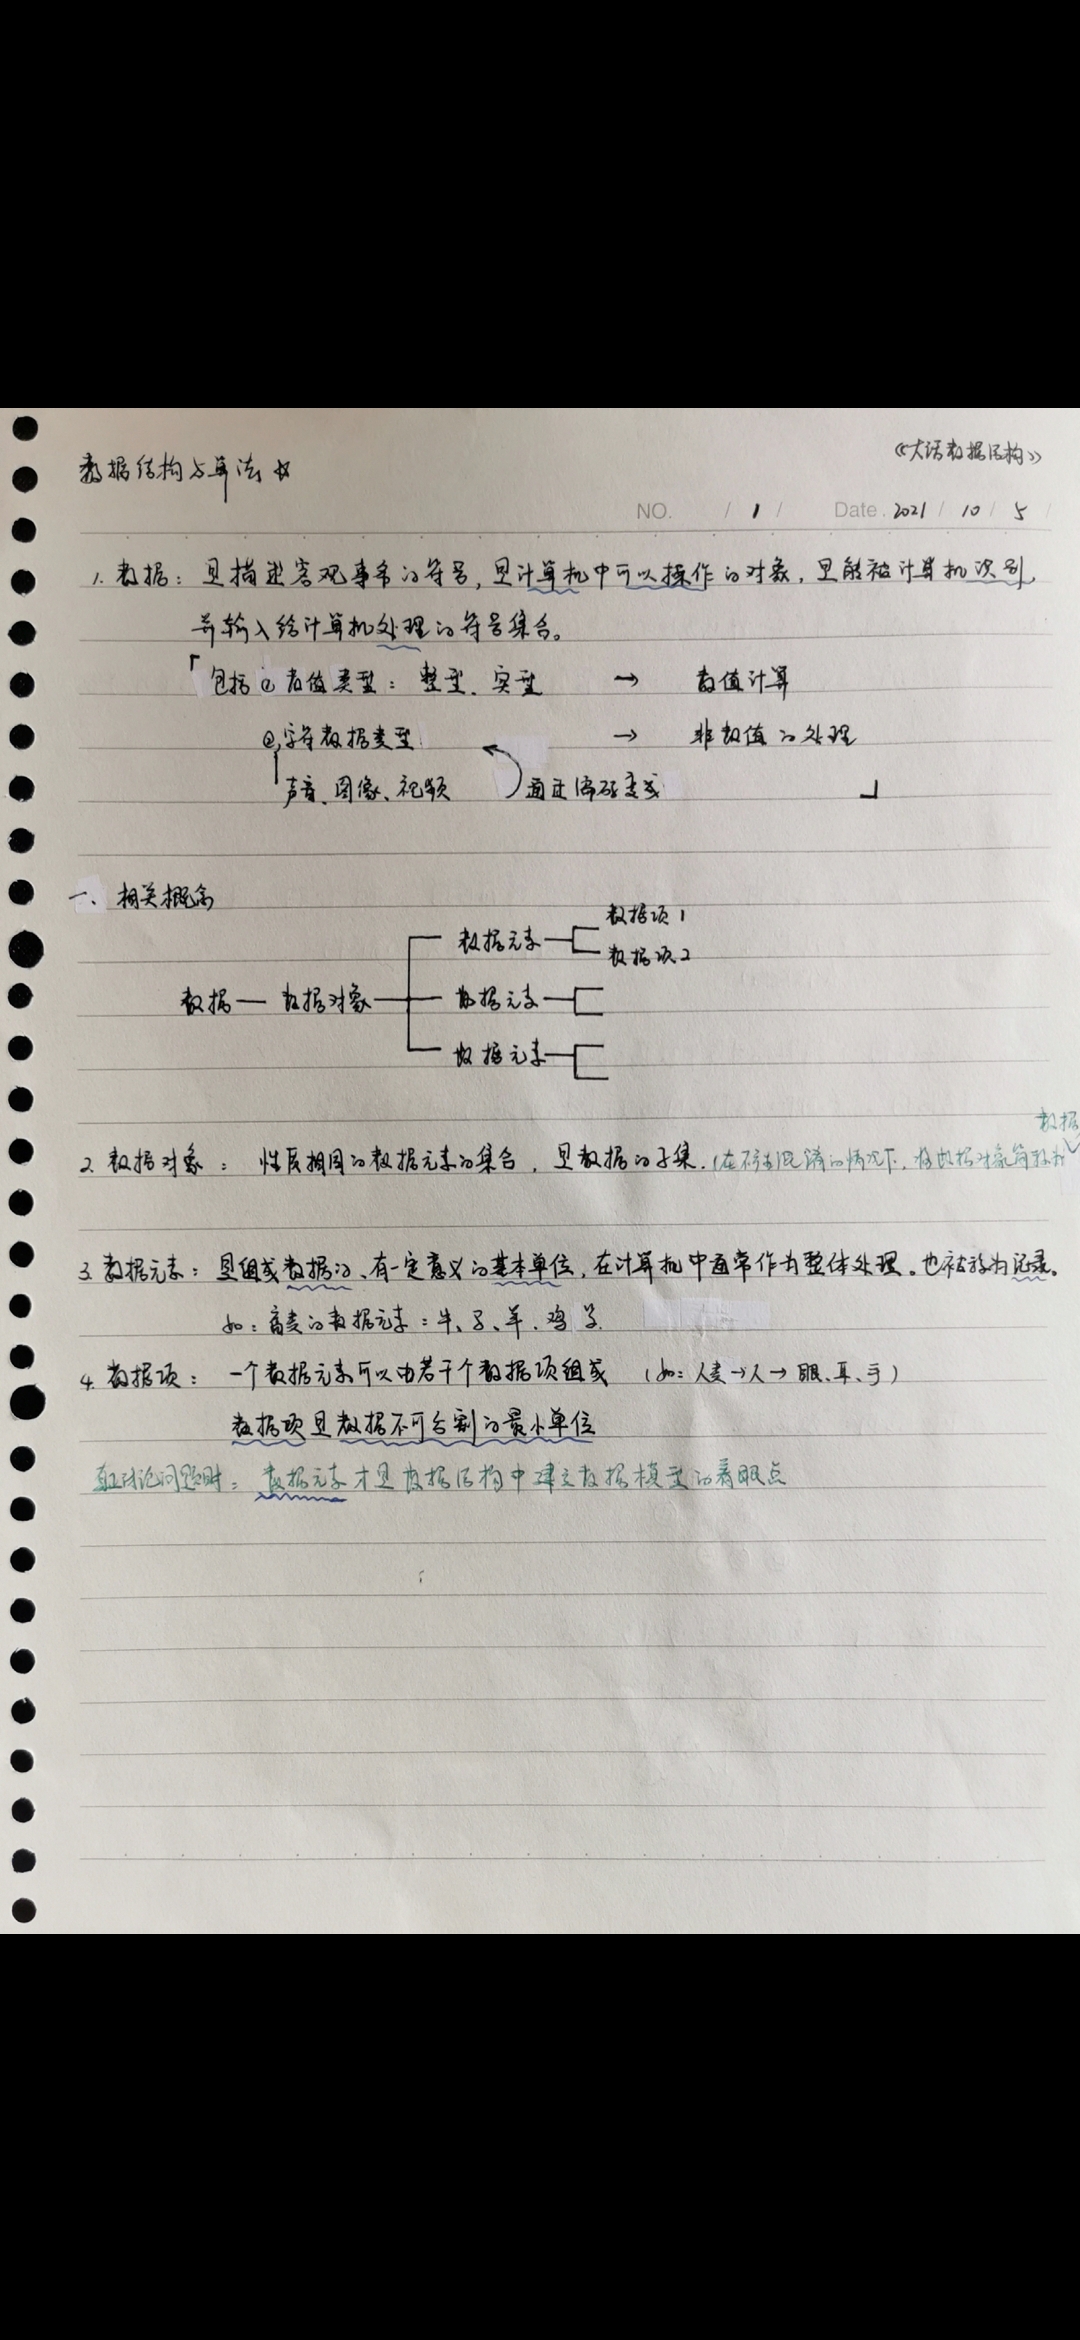 《大话数据结构》
数据结构与算法
NO. / 1 / Date. 2021 / 10 / 5
1. 数据：是描述客观事务的符号，是计算机中可以操作的对象，是能被计算机识别，
并输入给计算机处理的符号集合。
「包括 ① 数值类型：整型、实型 → 数值计算
②字符数据类型 → 非数值的处理
声音、图像、视频 通过编码变成 」
一、相关概念
数据项1
数据元素
数据项2
数据 — 数据对象 数据元素
数据元素
数据
2. 数据对象： 性质相同的数据元素的集合，是数据的子集.（在不产生混淆的情况下，将数据对象简称为
3. 数据元素：是组成数据的、有一定意义的基本单位，在计算机中通常作为整体处理。也被称为记录。
如：畜类的数据元素：牛、马、羊、鸡等
4. 数据项： 一个数据元素可以由若干个数据项组成 （如：人类→人→眼、耳、手）
数据项是数据不可分割的最小单位
真正讨论问题时：数据元素才是数据结构中建立数据模型的着眼点